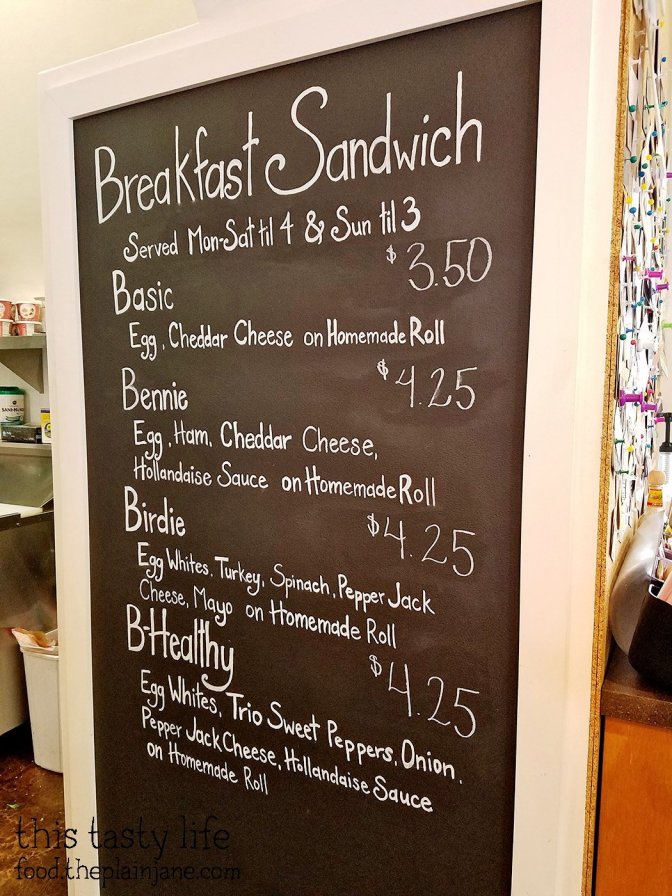 Breakfast Sandwich
Served Mon-Sat til 4 & Sun til 3
Basic $3.50
Egg, Cheddar Cheese on Homemade Roll
Bennie $4.25
Egg, Ham, Cheddar Cheese,
Hollandaise Sauce on Homemade Roll
Birdie $4.25
Egg Whites, Turkey, Spinach, Pepper Jack
Cheese, Mayo on Homemade Roll
B-Healthy $4.25
Egg Whites, Trio Sweet Peppers, Onion,
Pepper Jack Cheese, Hollandaise Sauce
on Homemade Roll
this tasty life
food.theplainjane.com